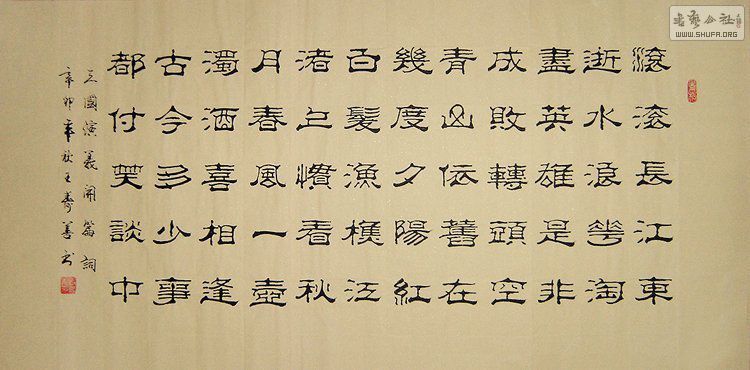 滾滾長江東
逝水浪花淘
盡英雄是非
成敗轉頭空
青山依舊在
幾度夕陽紅
白髮漁樵江
渚上慣看秋
月春風一壺
濁酒喜相逢
古今多少事
都付笑談中
三國演義開篇詞
辛卯年秋王壽善书
书藝公社
WWW.SHUFA.ORG